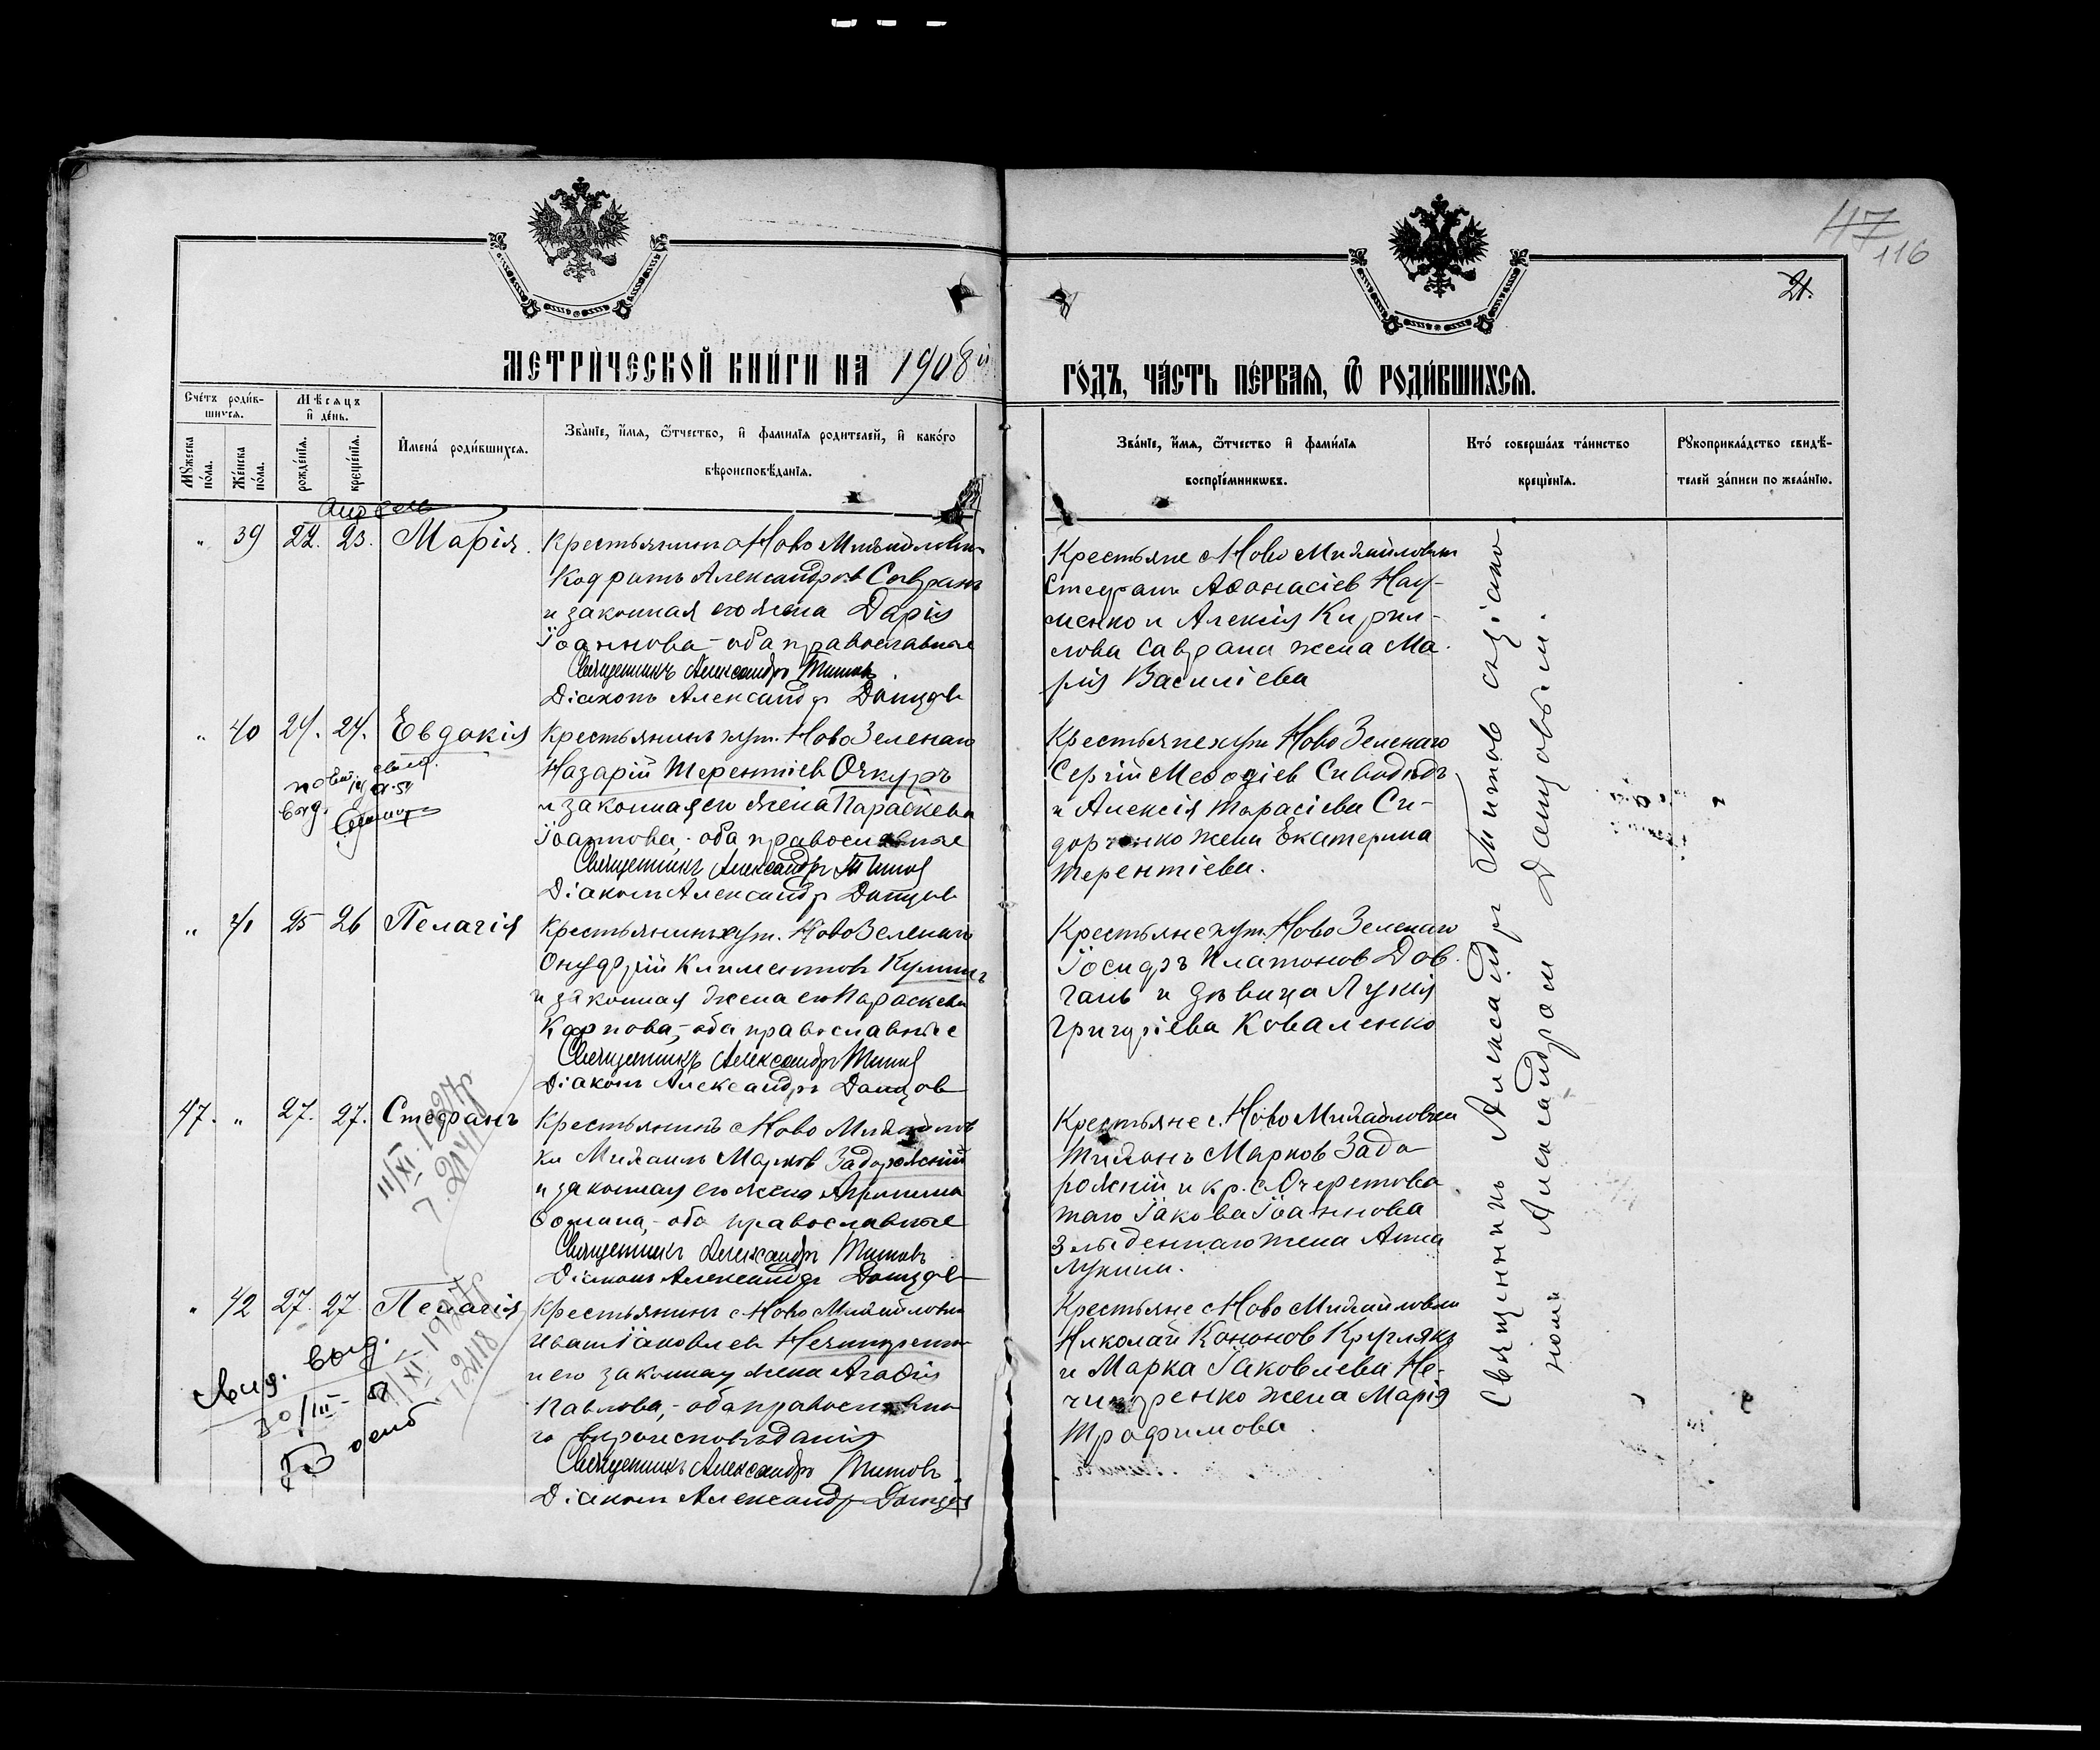 47
116
21.
МЕТРИЧЕСКОЙ КНИГИ НА 1908й
ГОДЪ, ЧАСТЬ ПЕРВАЯ, Ѡ РОДИВШИХСЯ.
Счетъ родив-
шихся.
Мѣсяцъ
и день.
Мужеска
пола.
Женска
пола.
рожденія.
крещенія.
Имена родившихся.
Званіе, имя, ѿчество, и фамилія родителей, и какого
вѣроисповѣданія.
Званіе, имя, ѿчество и фамилія
воспріемниковъ.
Кто совершалъ таинство
крещенія.
Рукоприкладство свидѣ-
телей записи по желанію.
Апрель
" 39 22. 23. Марія.
Крестьянинъ с Ново Михайловки
Кодратъ Александров Савранъ
и законная его жена Дарія
Іоаннова - оба православные
Священникъ Александръ Титовъ
Діаконъ Александръ Донцовъ
Крестьяне с Ново Михайловки
Стефанъ Аѳонасіев Нау-
менко и Алексія Кирил-
лова Саврана жена Ма-
рія Василіева
" 40 24. 24. Евдокія
Крестьянинъ хут. Ново Зеленаго
Назарій Терентіев Очкуръ
и законная его жена Параскева
Іоаннова, - оба православные
Священникъ Александръ Титов
Діаконъ Александръ Донцов
выд.
Крестьяне хут Ново Зеленаго
Сергій Меѳодіев Сиводѣдъ
и Алексія Тарасіева Си-
дорченко жена Екатерина
Терентіева.
" 41 25 26 Пелагія
Крестьянинъ хут. Ново Зеленаго
Онуфрій Климентовъ
и законная жена его Параскева
Карпова, - оба православные
Священникъ Александръ Титов
Діаконъ Александръ Донцов
Крестьяне хут. Ново Зеленаго
Іосифъ Платонов Дов-
гань и дѣвица Лукія
Григоріева Коваленко
47. " 27. 27. Стефанъ
Крестьянинъ с Ново Михайлов
ки Михаилъ Марков Задорожній
и законная его жена Агрипина
Ѳомина, - оба православные
Священникъ Александръ Титовъ
Діаконъ Александръ Донцов
11/XI. 1927
Крестьяне с. Ново Михайловки
Тихонъ Марков Задо
рожній и кр. с Очеретова
таго Іакова Іоаннова
жена Анна
Лукина.
" 42 27. 27 Пелагія
Крестьянинъ с Ново Михайловки
Иванъ Іаковлев Нечипоренко
и его законная жена Агаѳія
Павлова, - оба православна
го вѣроисповѣданія
Священникъ Александръ Титовъ
Діаконъ Александръ Донцов
выд.
30/III-
Крестьяне с Ново Михайловки
Николай Кононов Круглякъ
и Марка Іаковлева Не-
чипоренко жена Марія
Трофимова
Священникъ Александръ Титов с діако
номъ Александромъ Донцовымъ.